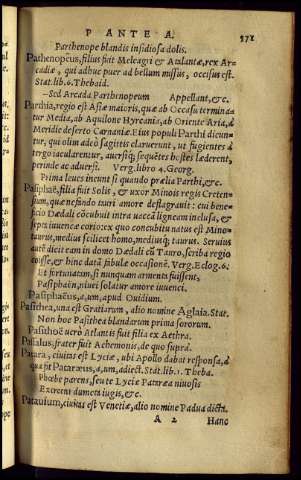 P A N T E A. 571
Parthenope blandis insidiosa dolis.
Pathenopæus, filius fuit Meleagri & Atalantæ, rex Ar-
cadiæ, qui adhuc puer ad bellum missus, occisus est.
Stat. lib. 6. Thebaid.
—Sed Arcada Parthenopæum Appellant, &c.
Parthia, regio est Asiæ maioris, quæ ab Occasu termina-
tur Media, ab Aquilone Hyrcania, ab Oriente Aria, à
Meridie deserto Carmaniæ. Eius populi Parthi dicun-
tur, qui olim adeò sagittis claruerunt, ut fugientes à
tergo iacularentur, auersique sequētes hostes læderent,
perinde ac aduersi. Verg. libro 4. Georg.
Prima leues incunt si quando prælia Parthi, &c.
Pasiphaë, filia fuit Solis, & uxor Minois regis Creten-
sium, quæ nefando tauri amore deflagrauit: cui bene-
ficio Dædali cōcubuit intra uaccā ligneam inclusa, &
septa iuuencæ corio: ex quo concubitu natus est Mino-
taurus, medius scilicet homo, mediusque taurus. Seruius
autē dicit eam in domo Dædali cū Tauro, scriba regio
coisse, & hinc datā fabulæ occasionē. Verg. Eclog. 6.
Et fortunatam, si nunquam armenta fuissent,
Pasiphaën, niuei solatur amore iuuenci.
Pasiphaëius, a, um, apud Ouidium.
Pasithea, una est Gratiarum, alio nomine Aglaia. Stat.
Non hoc Pasithea blandarum prima sororum.
Pasithoë uerò Atlantis fuit filia ex Aethra.
Passalus, frater fuit Achemonis, de quo suprà.
Patara, ciuitas est Lyciæ, ubi Apollo dabat responsa, à
qua fit Pataræus, a, um, adiect. Stat. lib. 1. Theba.
Phœbe parens, seu te Lyciæ Patæræa niuosis
Exercent dumeta iugis, &c.
Patauium, ciuitas est Venetiæ, alio nomine Padua dicta.
A 2 Hanc